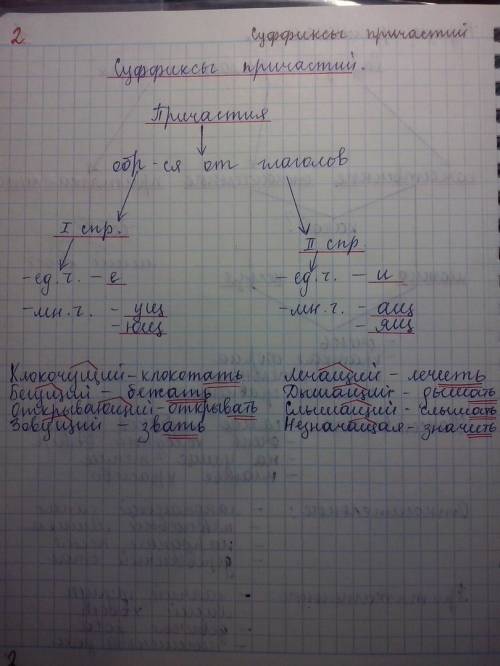 2
Суффиксы причастий
Суффиксы причастий.
Причастия
обр-ся от глаголов
I спр.
II спр.
-ед.ч. - е
-ед.ч. - и
-мн.ч. - ущ
- ющ
-мн.ч. - ащ
- ящ
Клокочущий-клокотать
Лечащий - лечить
Бегущий - бежать
Дышащий - дышать
Открывающий-открывать
Слышащий-слышать
Зовущий - звать
Незначащая-значить
2